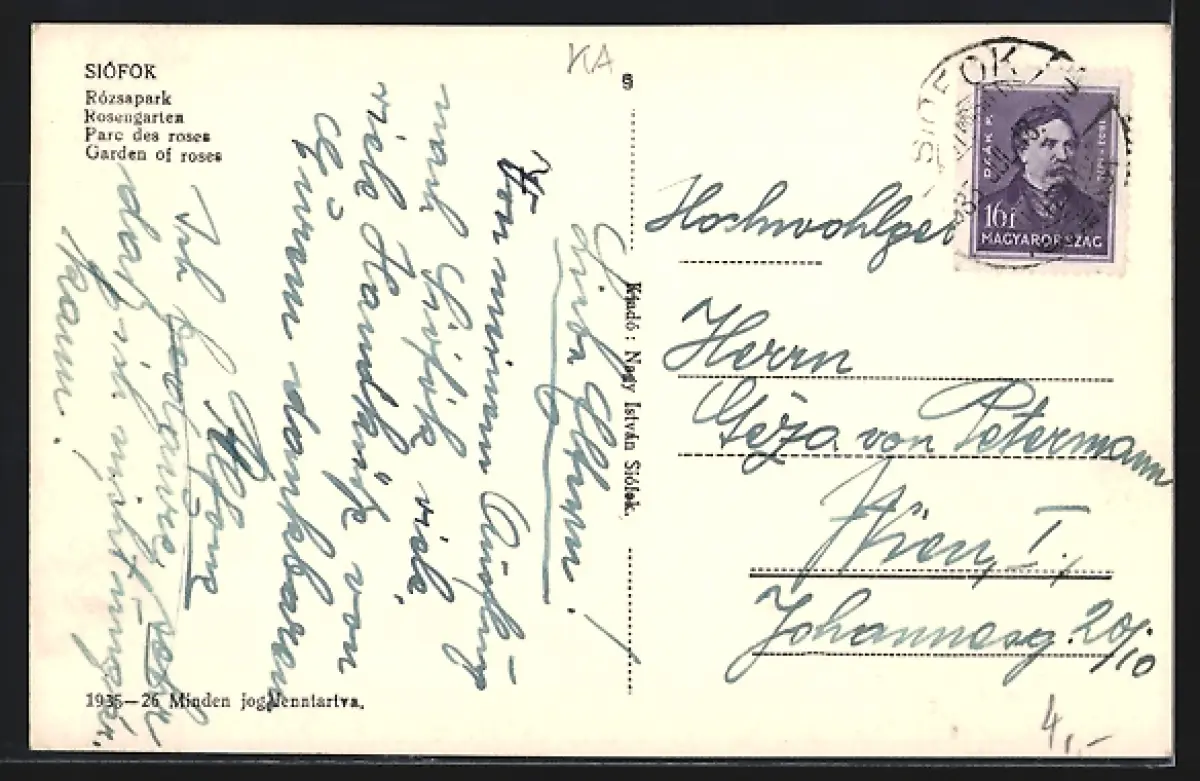 SIÓFOK
Rózsapark
Rosengarten
Parc des roses
Garden of roses
KA
Liebe Eltern!
Von meinem Ausflug
nach Siófok viele,
viele Handküsse von
Eurem dankbaren
Ich
daß ich nicht
kann.
1935—26 Minden jog fenntartva.
Kiadó: Nagy István Siófok.
SIÓFOK
DEÁK F.
16f
MAGYARORSZÁG
Hochwohlgeb
Herrn
Géza von Petermann
Wien, I.,
Johannesg. 20/10
4,-